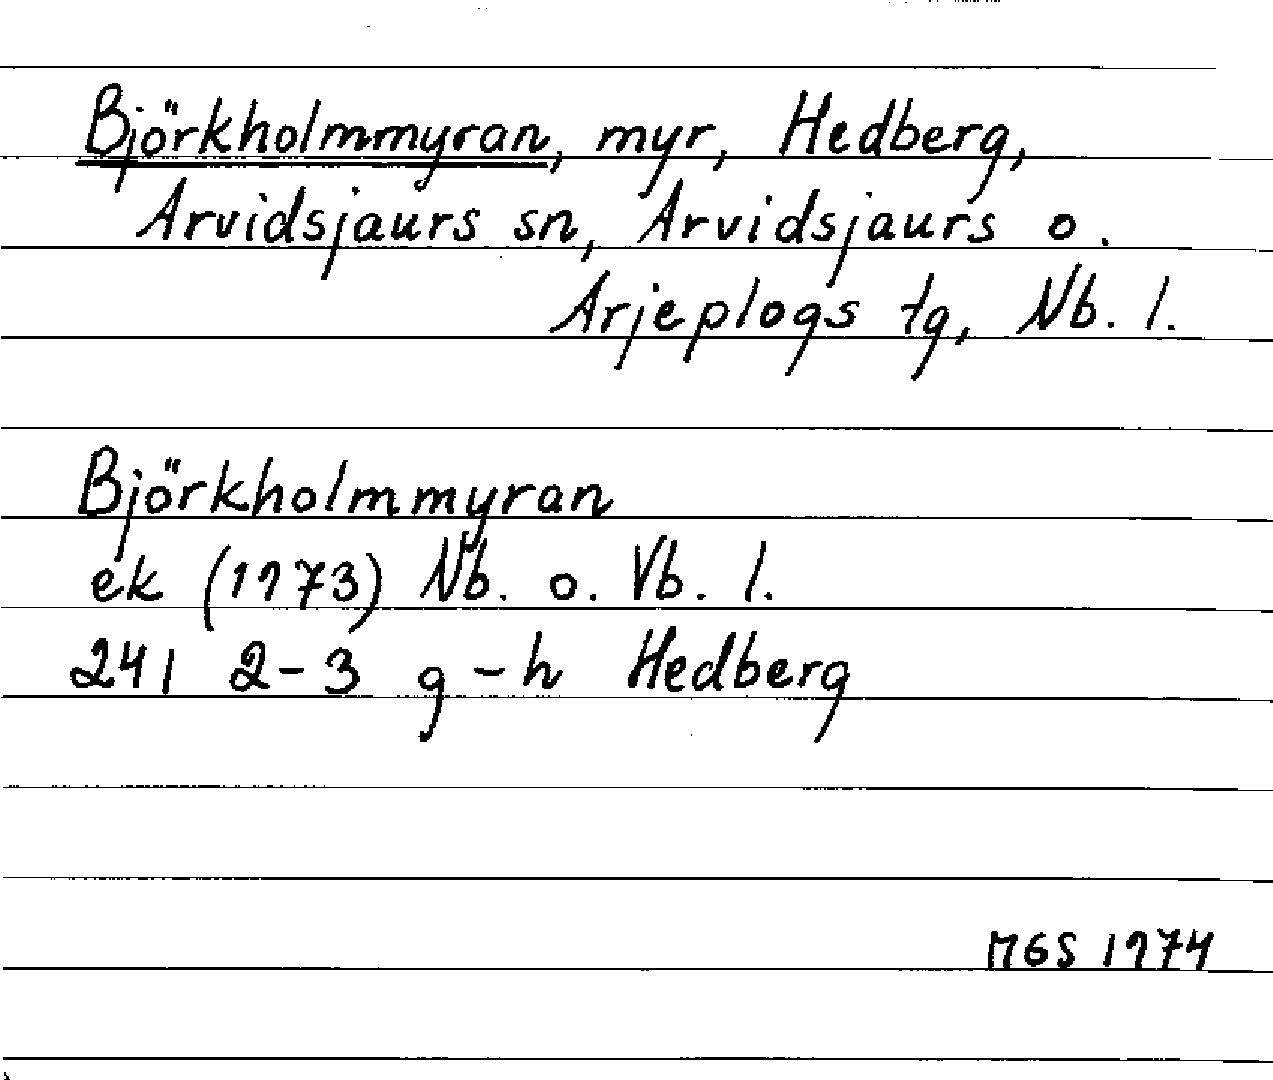 Björkholmmyran, myr, Hedberg,
Arvidsjaurs sn, Arvidsjaurs o.
Arjeplogs tg, Nb. l.
Björkholmmyran
ek (1973) Nb. o. Vb. l.
241 2-3 g-h Hedberg
MGS 1974